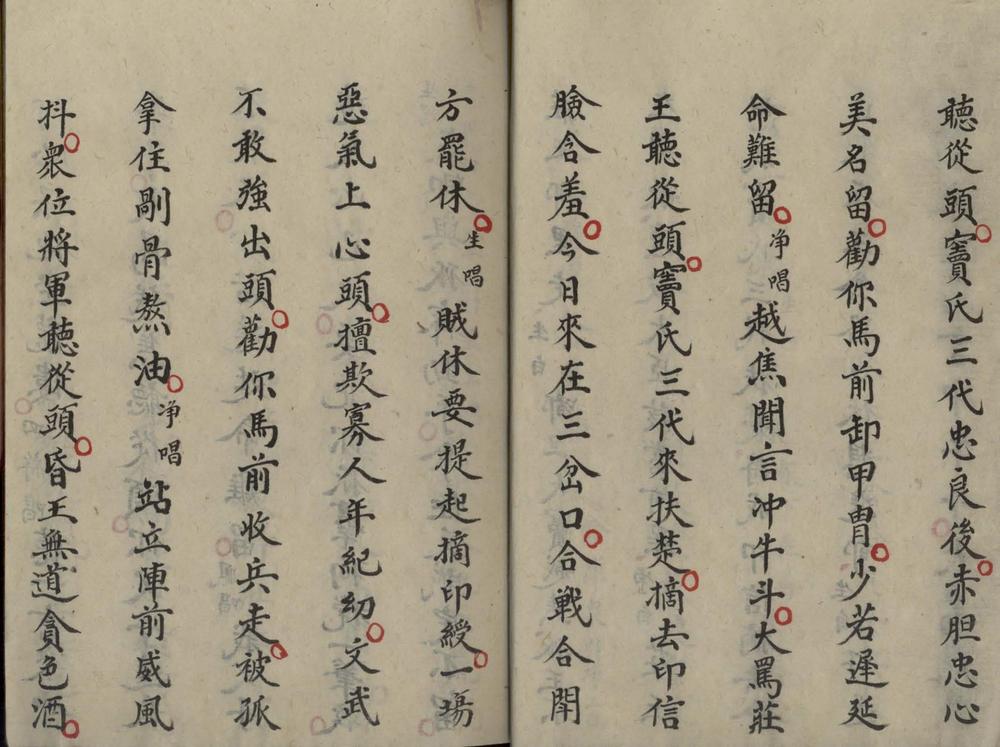 聽從頭竇氏三代忠良後赤胆忠心
美名留勸你馬前卸甲胄少若遲延
命難留净唱越焦聞言冲牛斗大罵莊
王聽從頭竇氏三代來扶楚摘去印信
臉含羞今日來在三岔口合戰合鬧
方罷休生唱賊休要提起摘印綬一場
惡氣上心頭擅欺寡人年紀幼文武
不敢強出頭勸你馬前收兵走被孤
拿住剮骨熬油净唱站立陣前威風
抖衆位將軍聽從頭昏王無道貪色酒